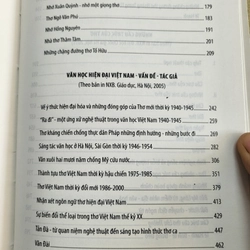 Nhớ Xuân Quỳnh - nhớ một giọng thơ ..... 179
Thơ Ngô Văn Phú ..... 183
Nhớ Hồng Nguyên ..... 191
Nhà thơ Thâm Tâm ..... 203
Những chặng đường thơ Tố Hữu ..... 209
VĂN HỌC HIỆN ĐẠI VIỆT NAM - VẤN ĐỀ - TÁC GIẢ
(Theo bản in NXB. Giáo dục, Hà Nội, 2005)
Về ý thức hiện đại hóa và những đóng góp của Thơ mới thời kỳ 1940-1945 ..... 242
"Ra đi" - một ứng xử nghệ thuật trong văn học Việt Nam 1940-1945 ..... 261
Thơ kháng chiến chống thực dân Pháp những định hướng - những bước đi ..... 282
Sáng tác văn học ở Hà Nội, Sài Gòn thời kỳ 1946-1954 ..... 308
Văn xuôi hai mươi năm chống Mỹ cứu nước ..... 323
Thành tựu thơ Việt Nam thời kỳ hậu chiến 1975-1985 ..... 351
Thơ Việt Nam thời kỳ đổi mới 1986-2000 ..... 380
Nhận xét ngôn ngữ thơ hiện đại Việt Nam ..... 413
Sự biến đổi thể loại trong thơ Việt Nam thế kỷ XX
Tản Đà - từ quan niệm nghệ thuật đến sáng tạo hình thức thơ ca
Văn Đài